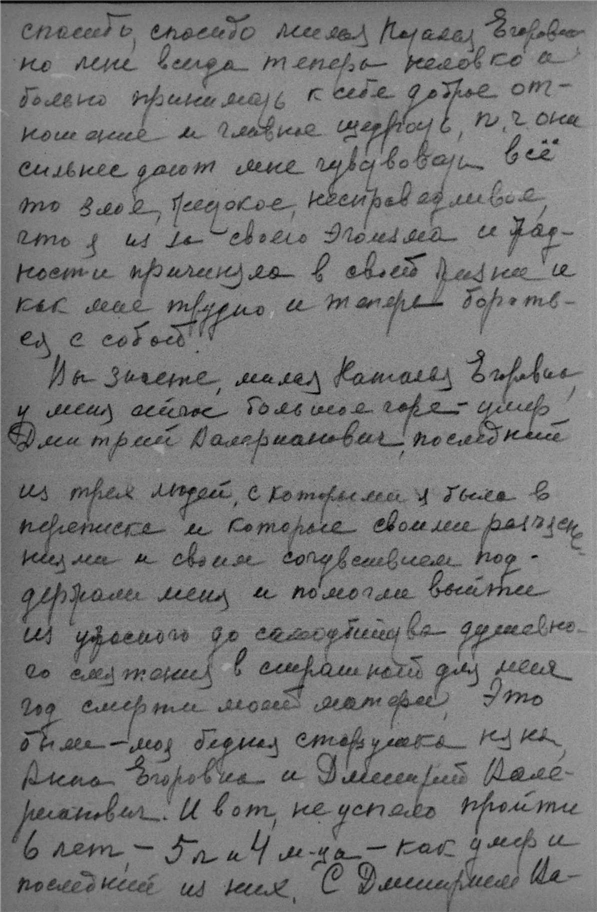 спасибо, спасибо милая Наталья Егоровна
но мне всегда теперь неловко и
больно принимать к себе доброе от-
ношение и главное щедрость, п.ч. они
сильнее дают мне чувствовать всё
то злое, жестокое, несправедливое,
что я из за своего эгоизма и жад-
ности причиняла в своей жизни и
как мне трудно и теперь бороть-
ся с собой.
Вы знаете, милая Наталья Егоровна,
у меня сейчас большое горе – умер
Дмитрий Валерианович, последний
из трех людей, с которыми я была в
переписке и которые своими разъясне-
ниями и своим сочувствием под-
держали меня и помогли выйти
из ужасного до самоубийства душевно-
го состояния в страшный для меня
год смерти моей матери. Это
были – моя бедная старушка няня,
Анна Егоровна и Дмитрий Вале-
рианович. И вот, не успело пройти
6 лет, – 5 л и 4 м-ца – как умер и
последний из них. С Дмитрием Ва-